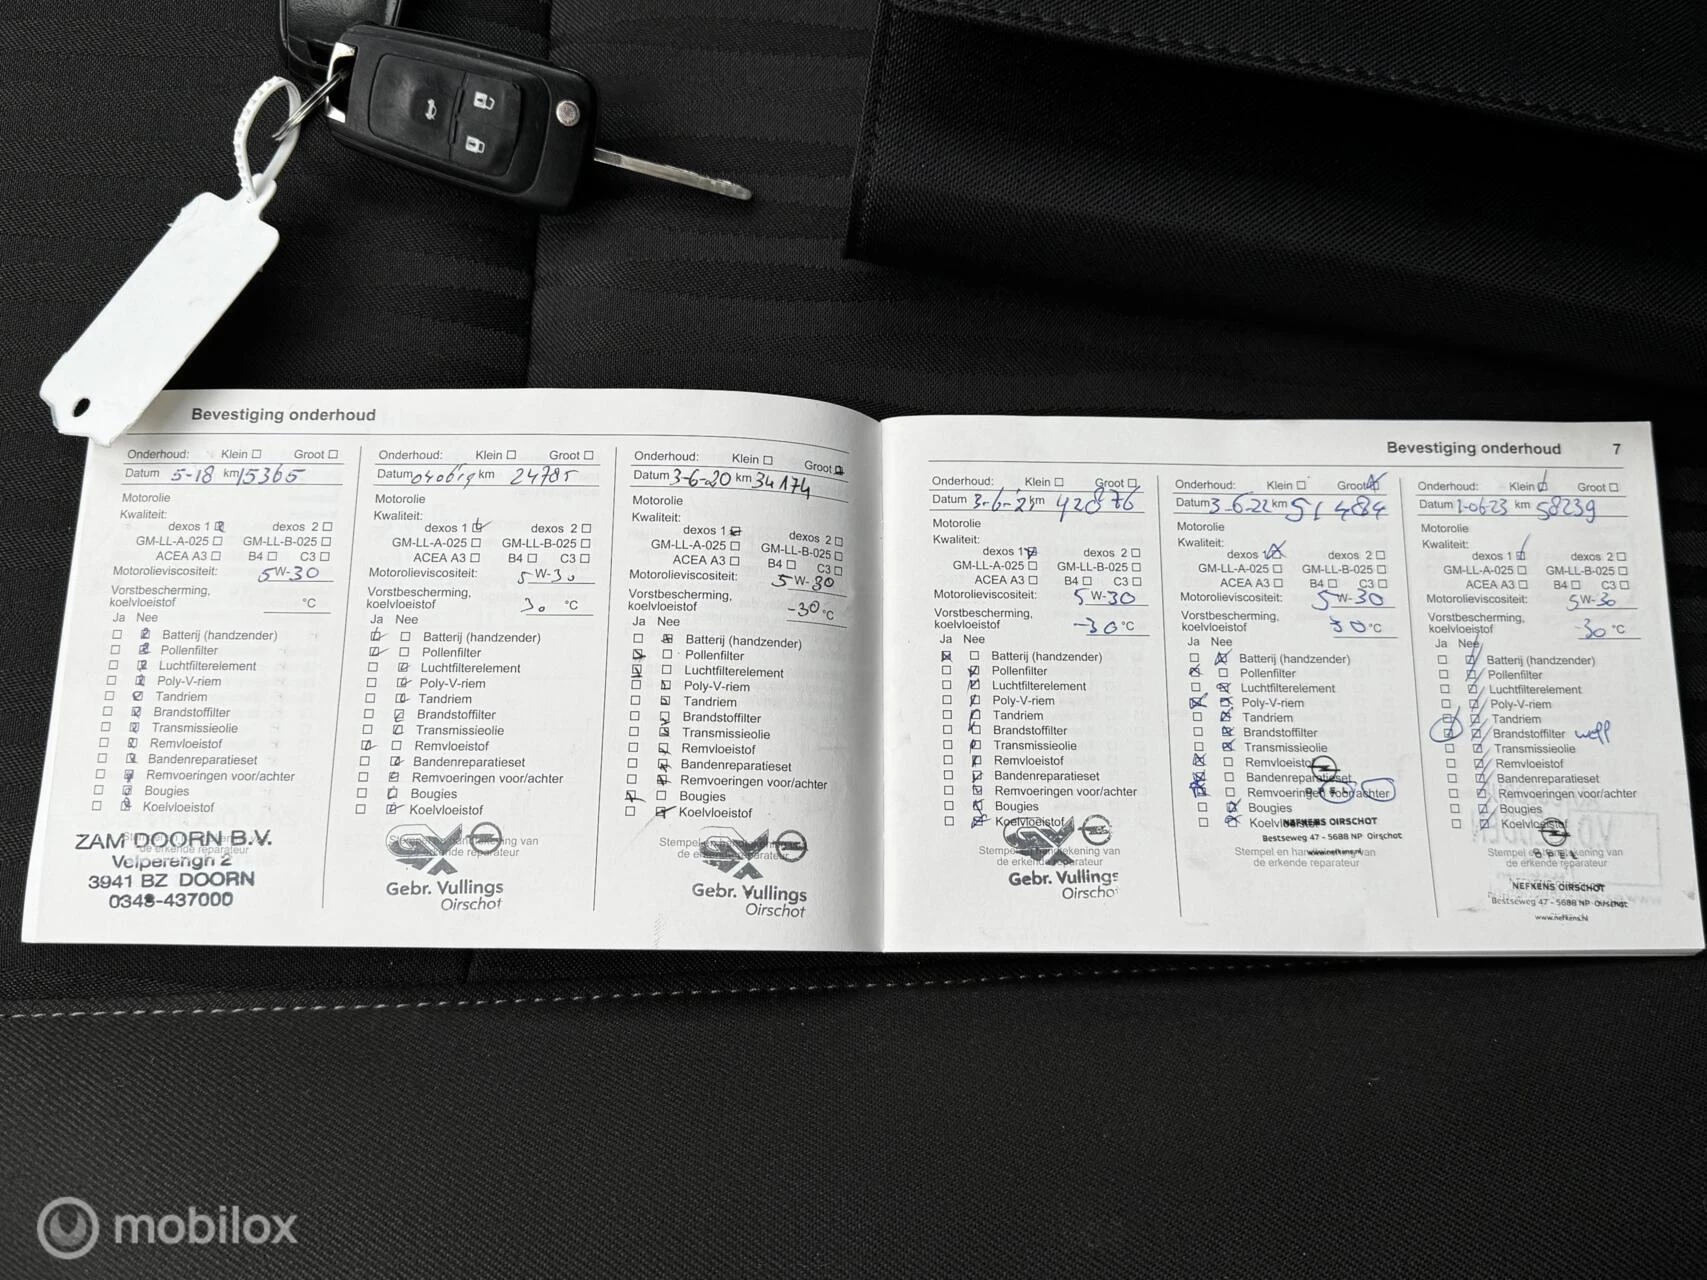 Bevestiging onderhoud
Onderhoud: Klein Groot
Datum 5-18 km 15365
Motorolie
Kwaliteit:
dexos 1 dexos 2
GM-LL-A-025 GM-LL-B-025
ACEA A3 B4 C3
Motorolieviscositeit: 5W-30
Vorstbescherming,
koelvloeistof °C
Ja Nee
Batterij (handzender)
Pollenfilter
Luchtfilterelement
Poly-V-riem
Tandriem
Brandstoffilter
Transmissieolie
Remvloeistof
Bandenreparatieset
Remvoeringen voor/achter
Bougies
Koelvloeistof
ZAM DOORN B.V.
Velperengh 2
3941 BZ DOORN
0343-437000
Onderhoud: Klein Groot
Datum 040619 km 24785
Motorolie
Kwaliteit:
dexos 1 dexos 2
GM-LL-A-025 GM-LL-B-025
ACEA A3 B4 C3
Motorolieviscositeit: 5W-30
Vorstbescherming,
koelvloeistof 30 °C
Ja Nee
Batterij (handzender)
Pollenfilter
Luchtfilterelement
Poly-V-riem
Tandriem
Brandstoffilter
Transmissieolie
Remvloeistof
Bandenreparatieset
Remvoeringen voor/achter
Bougies
Koelvloeistof
Gebr. Vullings
Oirschot
Onderhoud: Klein Groot
Datum 3-6-20 km 34174
Motorolie
Kwaliteit:
dexos 1 dexos 2
GM-LL-A-025 GM-LL-B-025
ACEA A3 B4 C3
Motorolieviscositeit: 5W-30
Vorstbescherming,
koelvloeistof -30 °C
Ja Nee
Batterij (handzender)
Pollenfilter
Luchtfilterelement
Poly-V-riem
Tandriem
Brandstoffilter
Transmissieolie
Remvloeistof
Bandenreparatieset
Remvoeringen voor/achter
Bougies
Koelvloeistof
Gebr. Vullings
Oirschot
Bevestiging onderhoud 7
Onderhoud: Klein Groot
Datum 3-6-21 km 42876
Motorolie
Kwaliteit:
dexos 1 dexos 2
GM-LL-A-025 GM-LL-B-025
ACEA A3 B4 C3
Motorolieviscositeit: 5W-30
Vorstbescherming,
koelvloeistof -30 °C
Ja Nee
Batterij (handzender)
Pollenfilter
Luchtfilterelement
Poly-V-riem
Tandriem
Brandstoffilter
Transmissieolie
Remvloeistof
Bandenreparatieset
Remvoeringen voor/achter
Bougies
Koelvloeistof
Stempel en handtekening van
de erkende reparateur
Gebr. Vullings
Oirschot
Onderhoud: Klein Groot
Datum 3-6-22 km 51484
Motorolie
Kwaliteit:
dexos 1 dexos 2
GM-LL-A-025 GM-LL-B-025
ACEA A3 B4 C3
Motorolieviscositeit: 5W-30
Vorstbescherming,
koelvloeistof 30 °C
Ja Nee
Batterij (handzender)
Pollenfilter
Luchtfilterelement
Poly-V-riem
Tandriem
Brandstoffilter
Transmissieolie
Remvloeistof
Bandenreparatieset
Remvoeringen voor/achter
OPEL
Bougies
Koelvloeistof
NEFKENS OIRSCHOT
Bestseweg 47 - 5688 NP Oirschot
www.nefkens.nl
Stempel en handtekening van
de erkende reparateur
Onderhoud: Klein Groot
Datum 1-06-23 km 58239
Motorolie
Kwaliteit:
dexos 1 dexos 2
GM-LL-A-025 GM-LL-B-025
ACEA A3 B4 C3
Motorolieviscositeit: 5W-30
Vorstbescherming,
koelvloeistof -30 °C
Ja Nee
Batterij (handzender)
Pollenfilter
Luchtfilterelement
Poly-V-riem
Tandriem
Brandstoffilter
Transmissieolie
Remvloeistof
Bandenreparatieset
Remvoeringen voor/achter
Bougies
Koelvloeistof
Stempel en handtekening van
OPEL
NEFKENS OIRSCHOT
Bestseweg 47 - 5688 NP Oirschot
www.nefkens.nl
mobilox